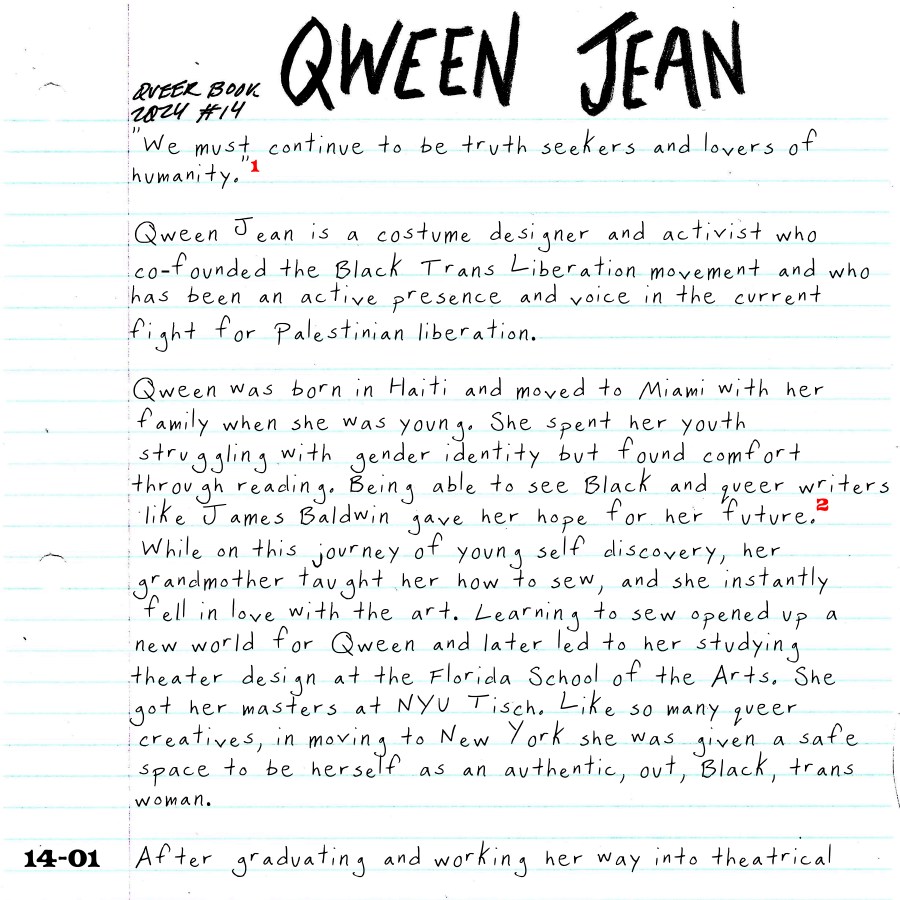 QWEEN JEAN
QUEER BOOK
2024 #14
"We must continue to be truth seekers and lovers of
humanity."1
Qween Jean is a costume designer and activist who
co-founded the Black Trans Liberation movement and who
has been an active presence and voice in the current
fight for Palestinian liberation.
Qween was born in Haiti and moved to Miami with her
family when she was young. She spent her youth
struggling with gender identity but found comfort
through reading. Being able to see Black and queer writers
like James Baldwin gave her hope for her future.2
While on this journey of young self discovery, her
grandmother taught her how to sew, and she instantly
fell in love with the art. Learning to sew opened up a
new world for Qween and later led to her studying
theater design at the Florida School of the Arts. She
got her masters at NYU Tisch. Like so many queer
creatives, in moving to New York she was given a safe
space to be herself as an authentic, out, Black, trans
woman.
14-01 After graduating and working her way into theatrical